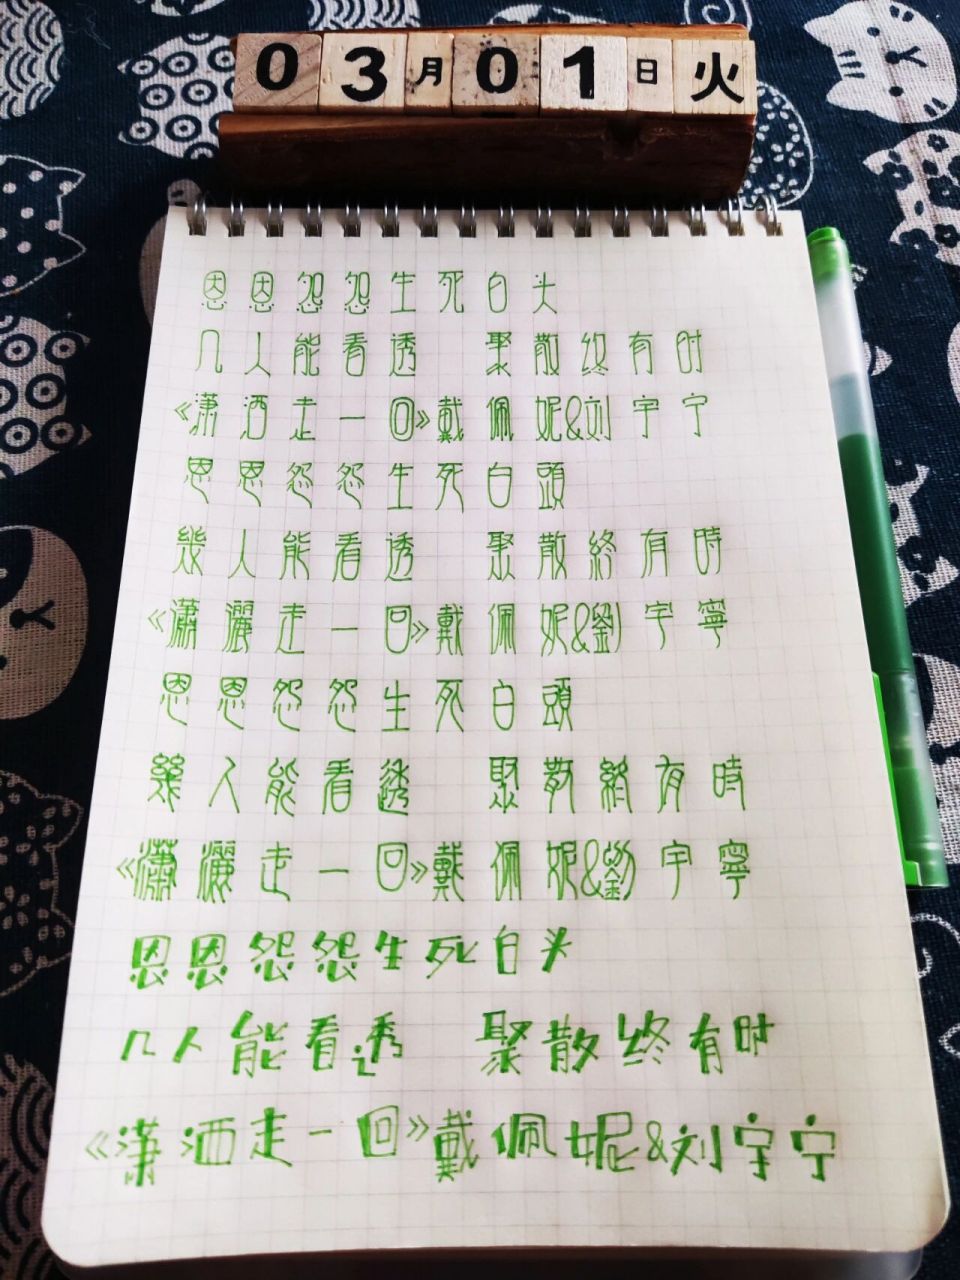 03月01日火
恩恩怨怨生死白头
几人能看透 聚散终有时
《潇洒走一回》戴佩妮&刘宇宁
恩恩怨怨生死白頭
幾人能看透 聚散終有時
《瀟灑走一回》戴佩妮&劉宇寧
恩恩怨怨生死白頭
幾人能看透 聚散終有時
《瀟灑走一回》戴佩妮&劉宇寧
恩恩怨怨生死白头
几人能看透 聚散终有时
《潇洒走一回》戴佩妮&刘宇宁